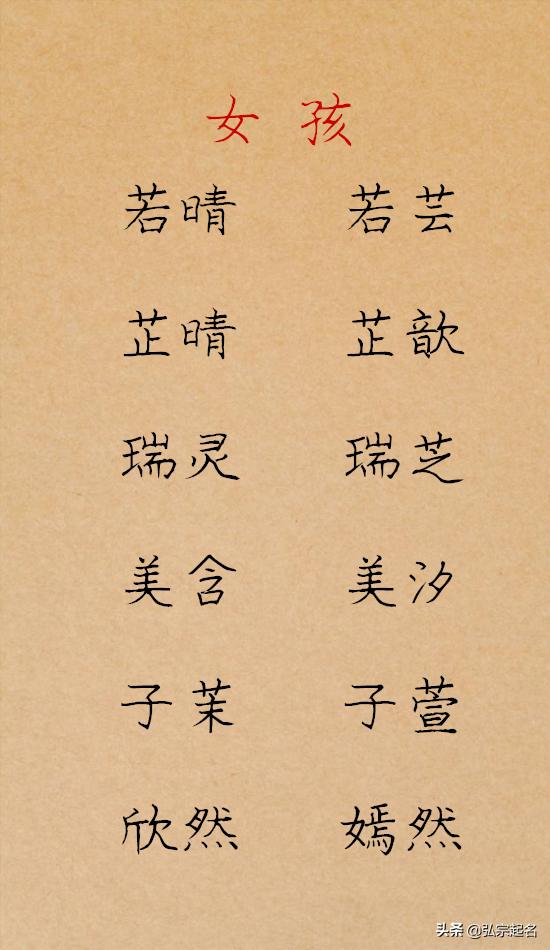 女孩
若晴 若芸
芷晴 芷歆
瑞灵 瑞芝
美含 美汐
子茉 子萱
欣然 嫣然
头条 @弘宗起名